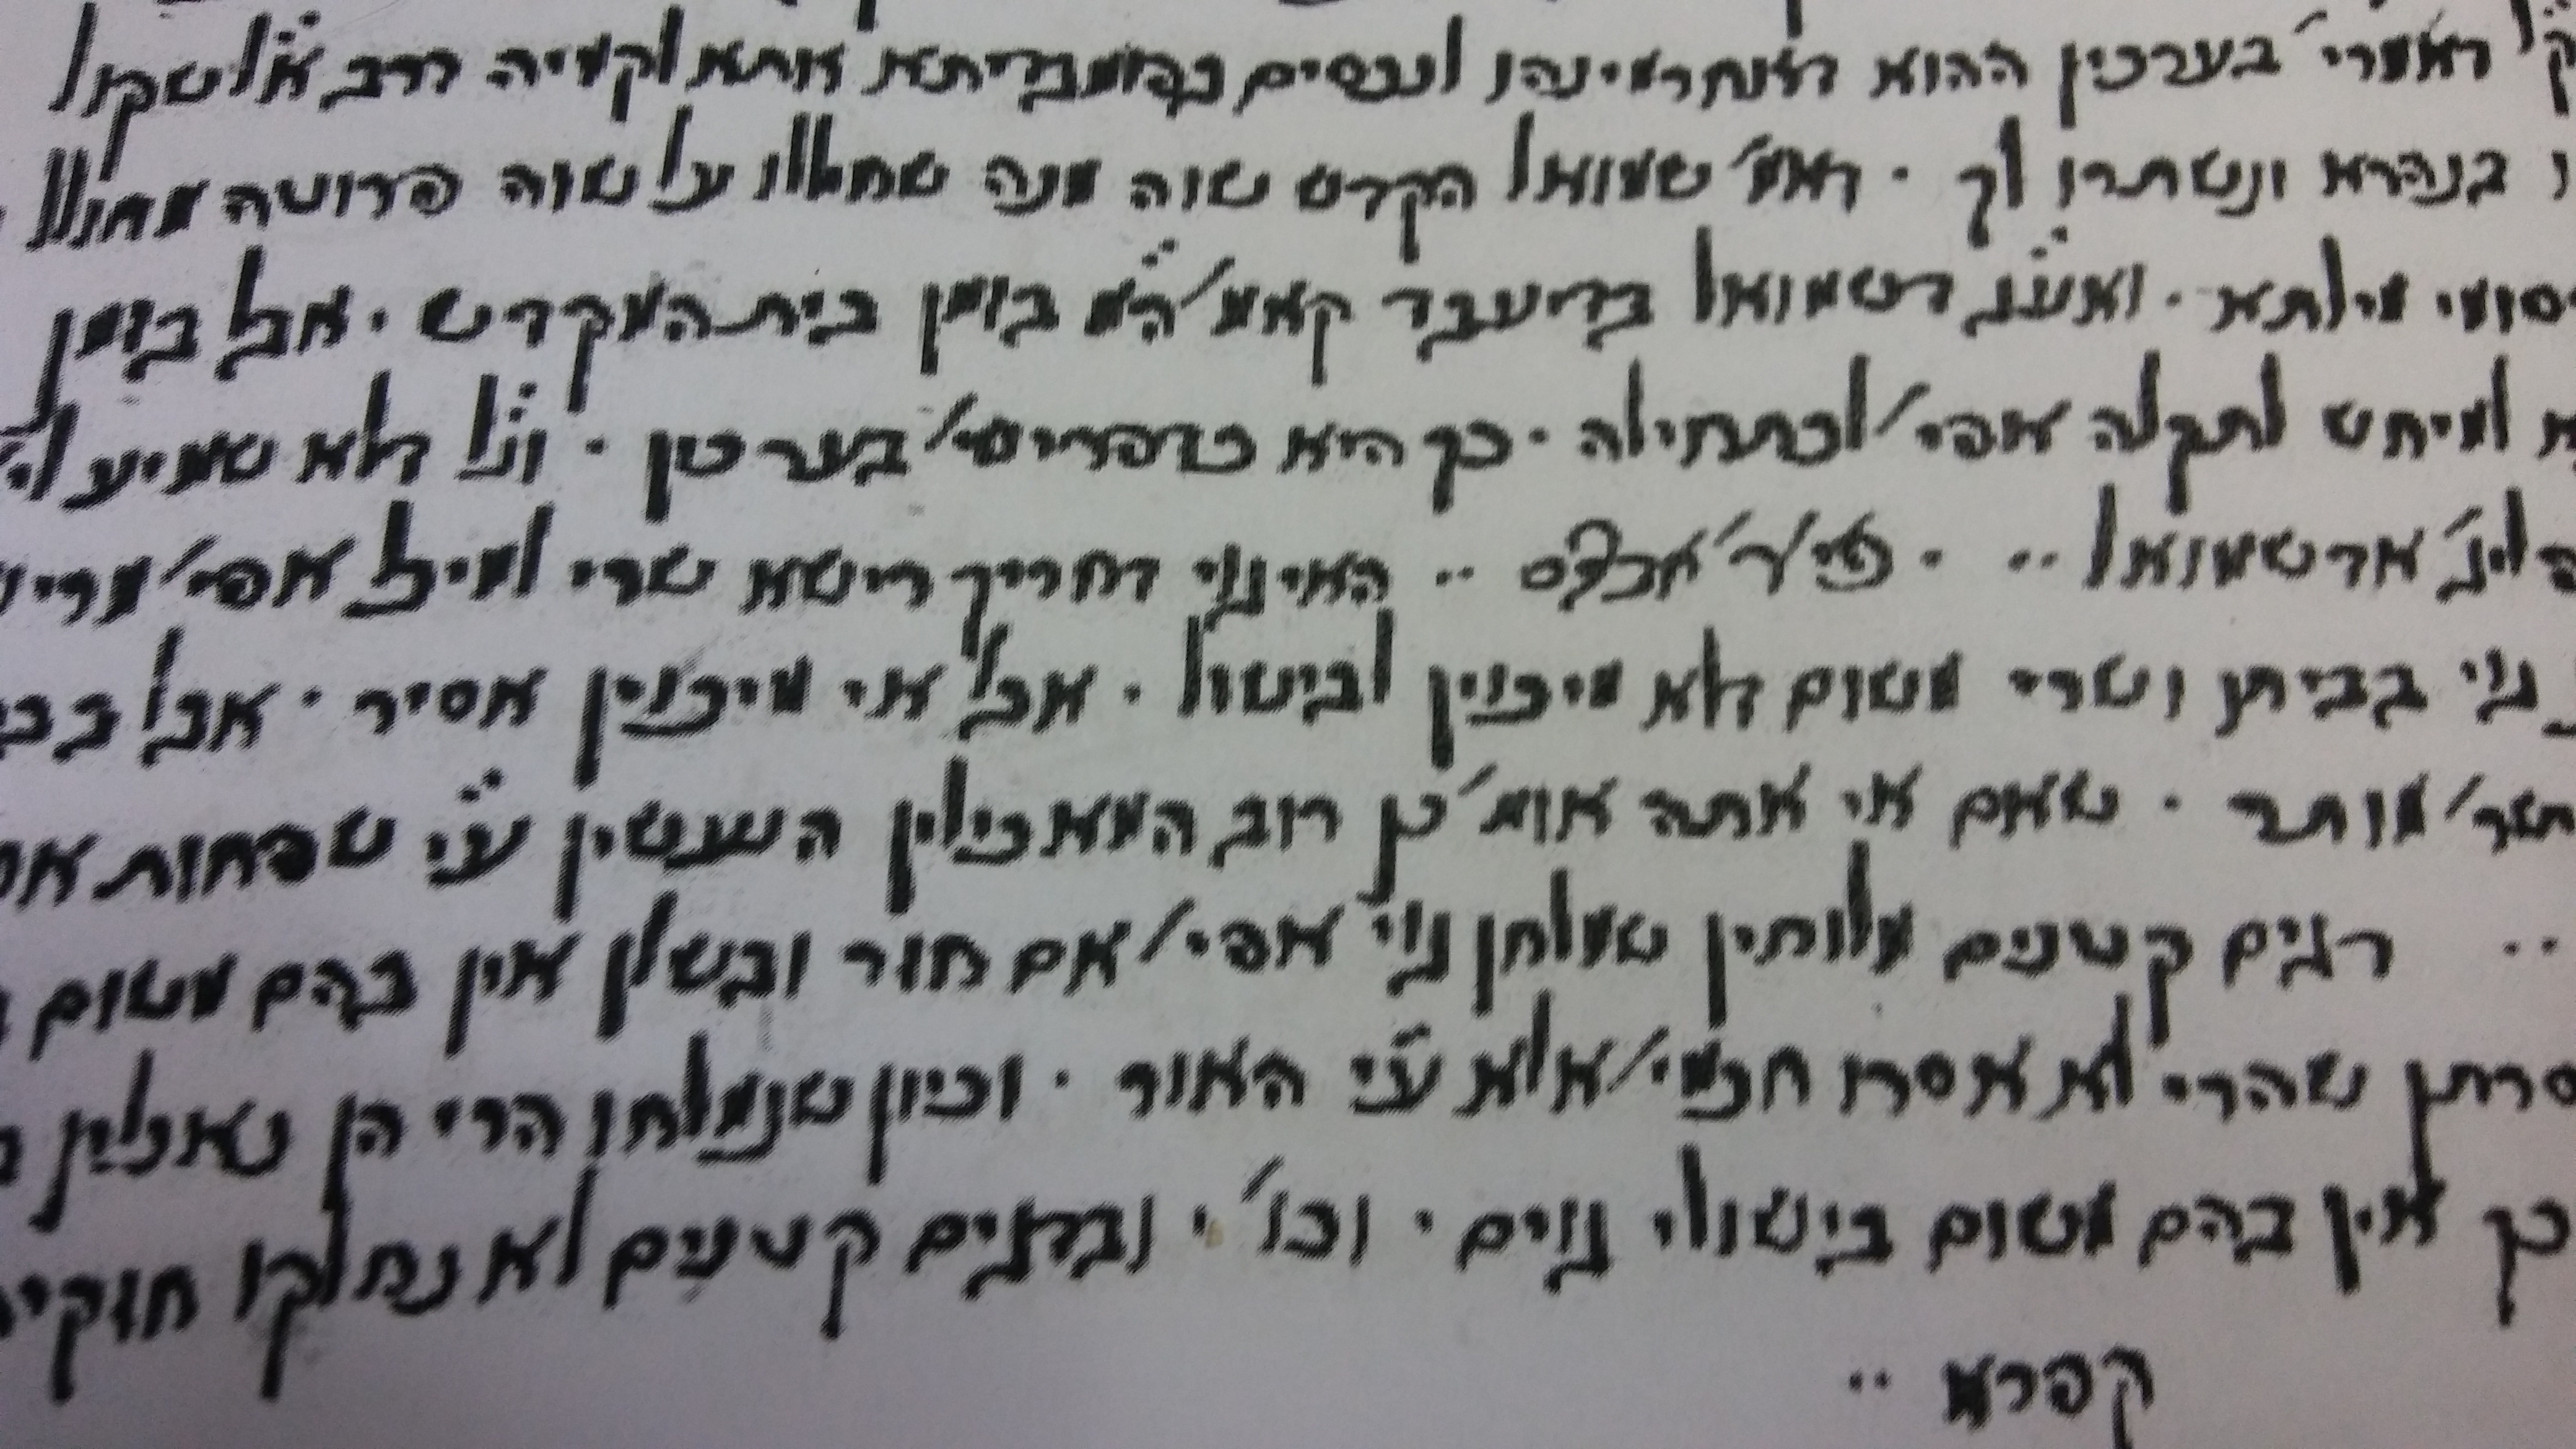 דאמרי׳ בערכין ההוא דאחרמינהו לנכסים בפומבדיתא אתא לקמיה דרב א״ל שקול
בנהרא ונשתרו לך · דאמ׳ שמואל הקדש שוה מנה שחללו על שוה פרוטה מחולל
מילתא · ואע״ג דשמואל בדיעבד קאמ׳ ה״מ בזמן בית המקדש · אבל בזמן
למיחש לתקלה אפי׳ לכתחילה · כך היא בערכין · ונ״ל דלא שמיע
אדשמואל ·· האי גוי דחריך רישא שרי למיכל אפי׳
גוי בביתו ושרי משום דלא מיכוין לבישול · אבל אי מיכוין אסיר · אבל
מותר · שאם אי אתה אומ׳ כן רוב המאכילין העושין ע״י שפחות
·· דגים קטנים מלוחין שמלחן גוי אפי׳ אם חזר ובשלן אין בהם משום
שהרי לא אסרו חכמי׳ אלא ע״י האור · וכיון שנמלחו הרי הן נאכלין
כך אין בהם משום בישולי גוים · וכו׳ · ובדגים קטנים לא נחלקו
קפרא ··